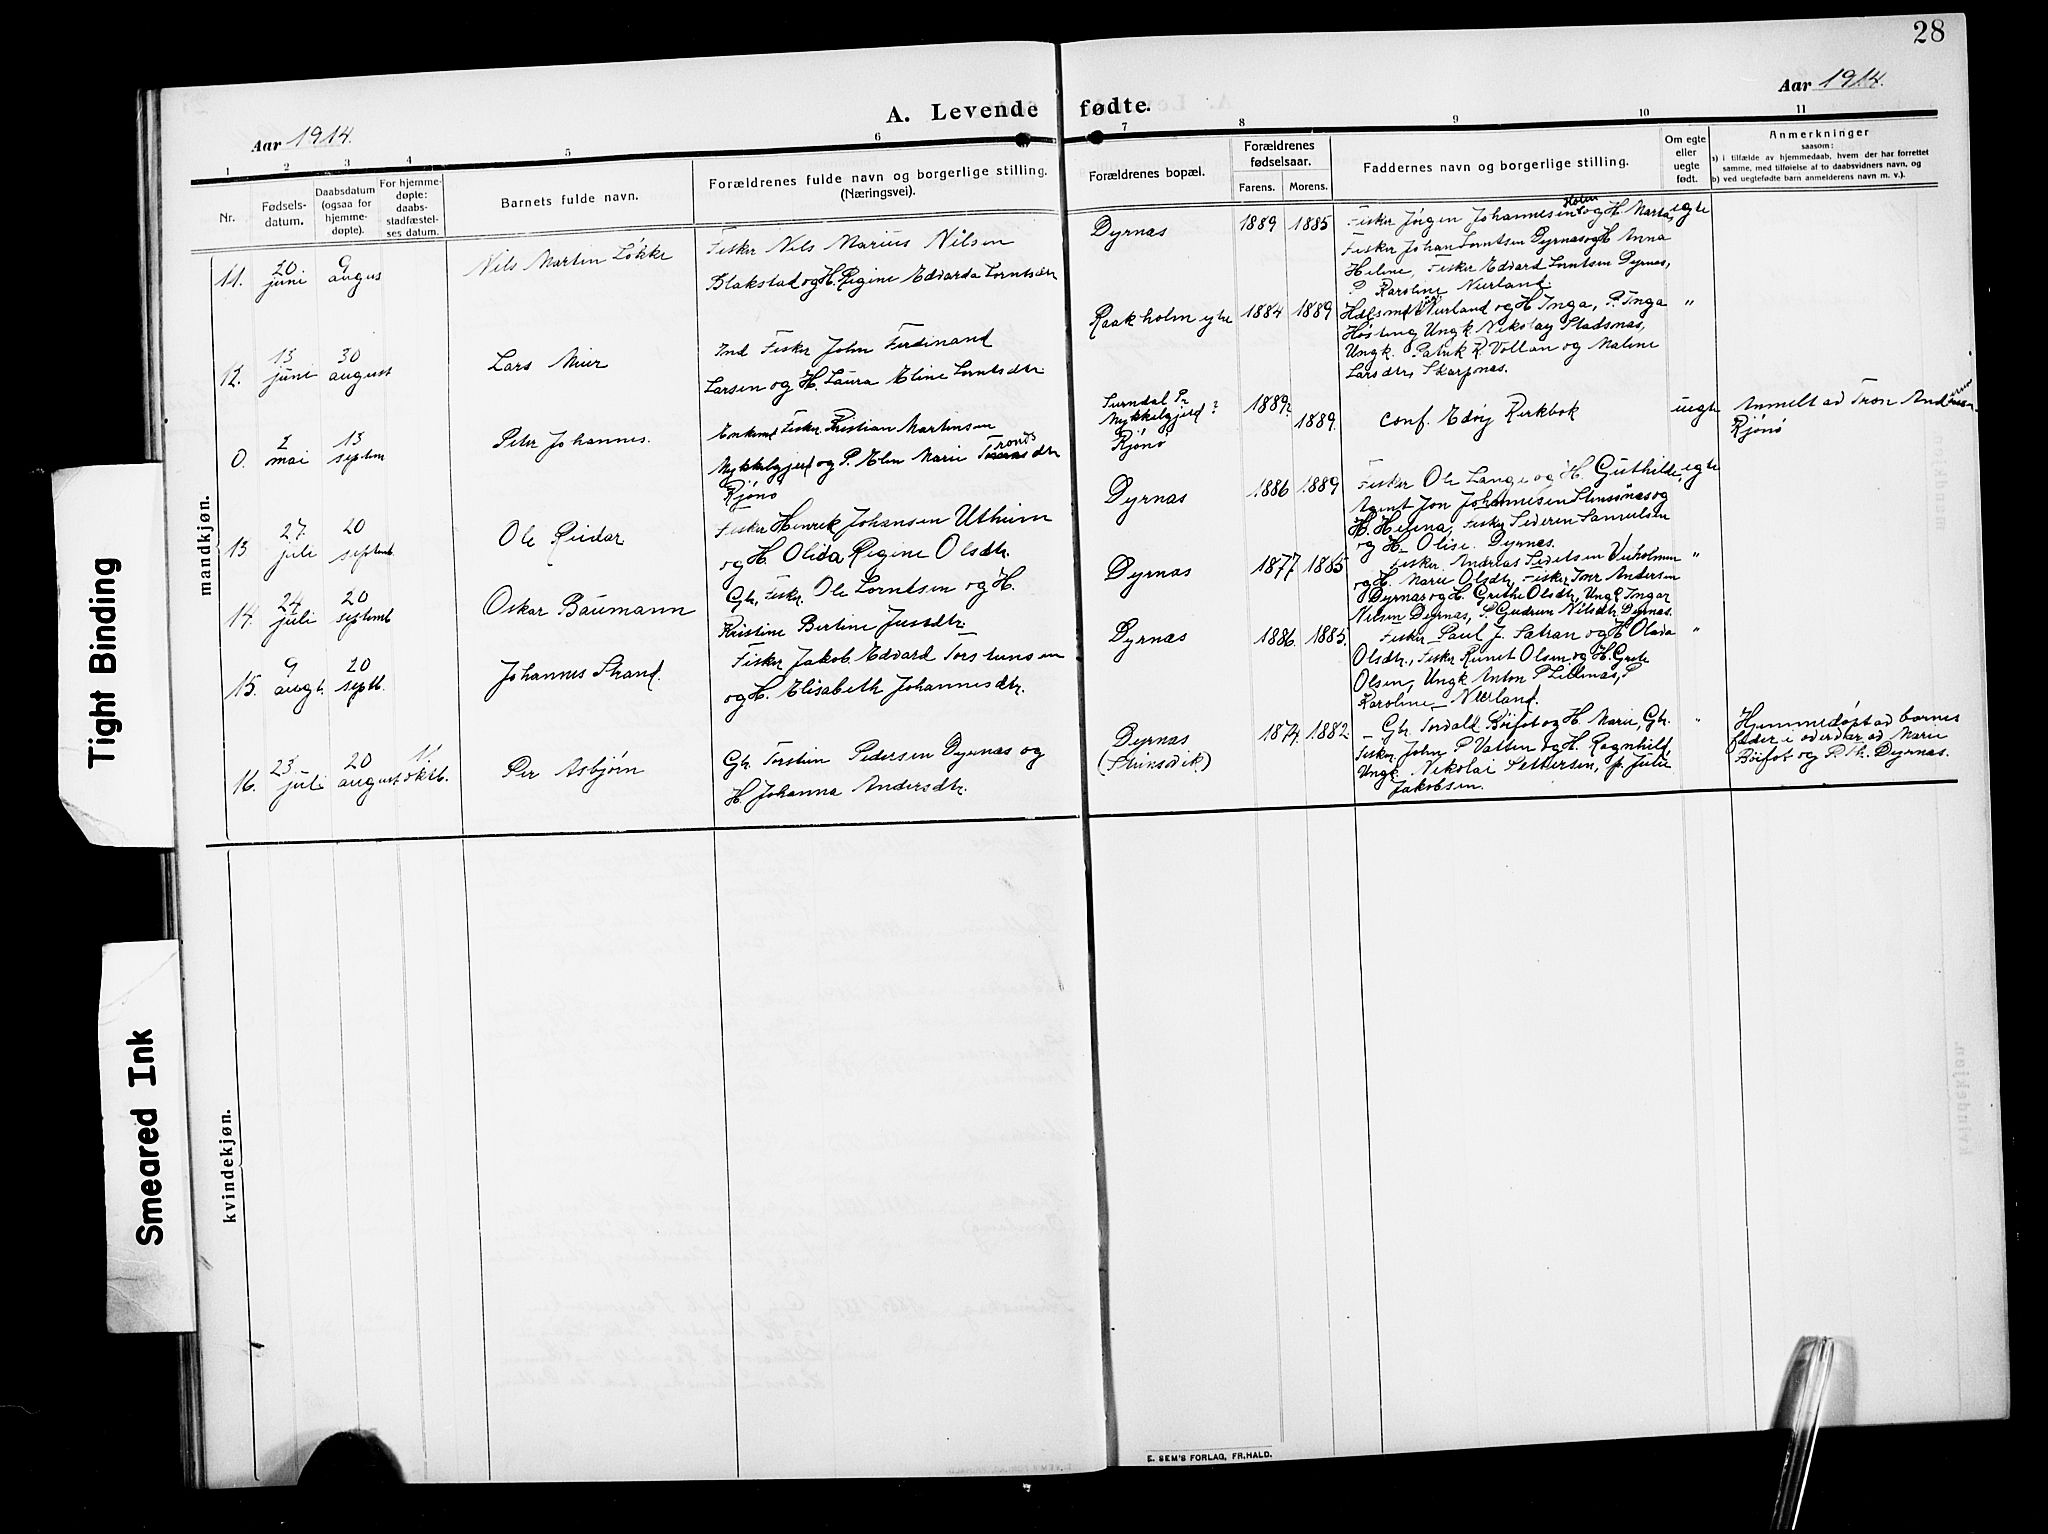 28
Aar 1914.
Aar 1914.
A. Levende fødte.
1 2 3 4 5 6 7 8 9 10 11
Nr.
Fødselsdatum.
Daabsdatum (ogsaa for hjemmedøpte).
For hjemmedøpte: daabsstadfæstelses datum.
Barnets fulde navn.
Forældrenes fulde navn og borgerlige stilling.
(Næringsvei).
Forældrenes bopæl.
Forældrenes fødselsaar.
Farens. Morens.
Faddernes navn og borgerlige stilling.
Om egte eller uegte født.
Anmerkninger
saasom:
a) i tilfælde av hjemmedaab, hvem der har forrettet
samme, med tilføielse af to daabsvidners navn, og
b) ved uegtefødte barn anmelderens navn m. v.).
mandkjøn.
11. 20 juni 9 augus
Nils Martin Løkke
Fisker Nils Marius Nilsen
Blakstad og H. Regine Edvarda Lorntsdtr
Dyrnas 1889 1885
Fisker Jørgen Johannesen Holen og H. Marta, egte
Fisker Johan Lorntsen Dyrnas og H Anna
Helene, Fisker Edvard Lorntsen Dyrnas,
P Karoline Nerland.
12. 13 juni 30 august
Lars Meier
Ind Fisker John Ferdinand
Larsen og H. Laura Eline Lorntsdtr.
Raakholm ytre 1884 1889
Nerland og H Inga, P. Inga "
Høsteng, Ungk Nikolay Stadsnas,
Ungk. Patrik R. Vollan og Malene
Larsdtr, Skarpnas.
0. 2 mai 13 septem
Peter Johannes.
Enkemd Fisker Kristian Martinsen
Mykkelgjerd og P. Elen Marie Tronds dtr
Kjønø
Surndal Pr
Mykkelgjerd ?
Kjønø
1889? 1889.
Conf. Edøy Kirkbok
uegte
Anmelt av Tron Andersen
Kjønø
13 27. juli 20 septemb.
Ole Reidar
Fisker Henrek Johansen Uthum
og H. Olida Regine Olsdtr.
Dyrnas 1886 1889
Fisker Ole Lange og H. Guthilde, egte
Agent Jon Johannesen Stensønas og
H. Helena, Fisker Pederen Samulsen
og H- Olise. Dyrnas.
14. 24 juli 20 septemb
Oskar Baumann
Gbr, Fisker Ole Lorntsen og H.
Kristine Bertine Jussdtr.
Dyrnas 1877 1885
Fisker Andreas Pedersen Veiholmen "
og H. Marie Olsdtr, Fisker Iver Andersen
Dyrnas og H. Grethe Olsdtr, Ungk Ingar
Nilsen Dyrnas, P. Gudrun Nilsdtr Dyrnas.
15. 9 augt. 20 septb.
Johannes Strand.
Fisker Jakob Edvard Torstensen
og H. Elisabeth Johannesdtr.
Dyrnas 1886. 1885.
Fisker Paul J. Satran og H Olava "
Olsdtr., Fisker Kunet Olsen og H. Grete
Olsen, Ungk Anton P Lillenas, P
Karoline Nerland.
16. 23 juli 20 august 11 oktb.
Per Asbjørn
Gbr. Torstein Pedersen Dyrnas og
H. Johanna Andersdtr.
Dyrnas
(Stensvik.)
1874. 1882
Gbr. Torvald Bøifot og H. Marie, Gbr. "
Fisker John P Valten og H. Ragnhild,
Ungk. Nikolai Settersen, p. Julie
Jakobsen.
Hjemmedøpt av barnets
fader i overvær av Marie
Bøifot og P. Th. Dyrnas.
kvindekjøn.
E. SEM'S FORLAG, FR.HALD.
Tight Binding
Smeared Ink